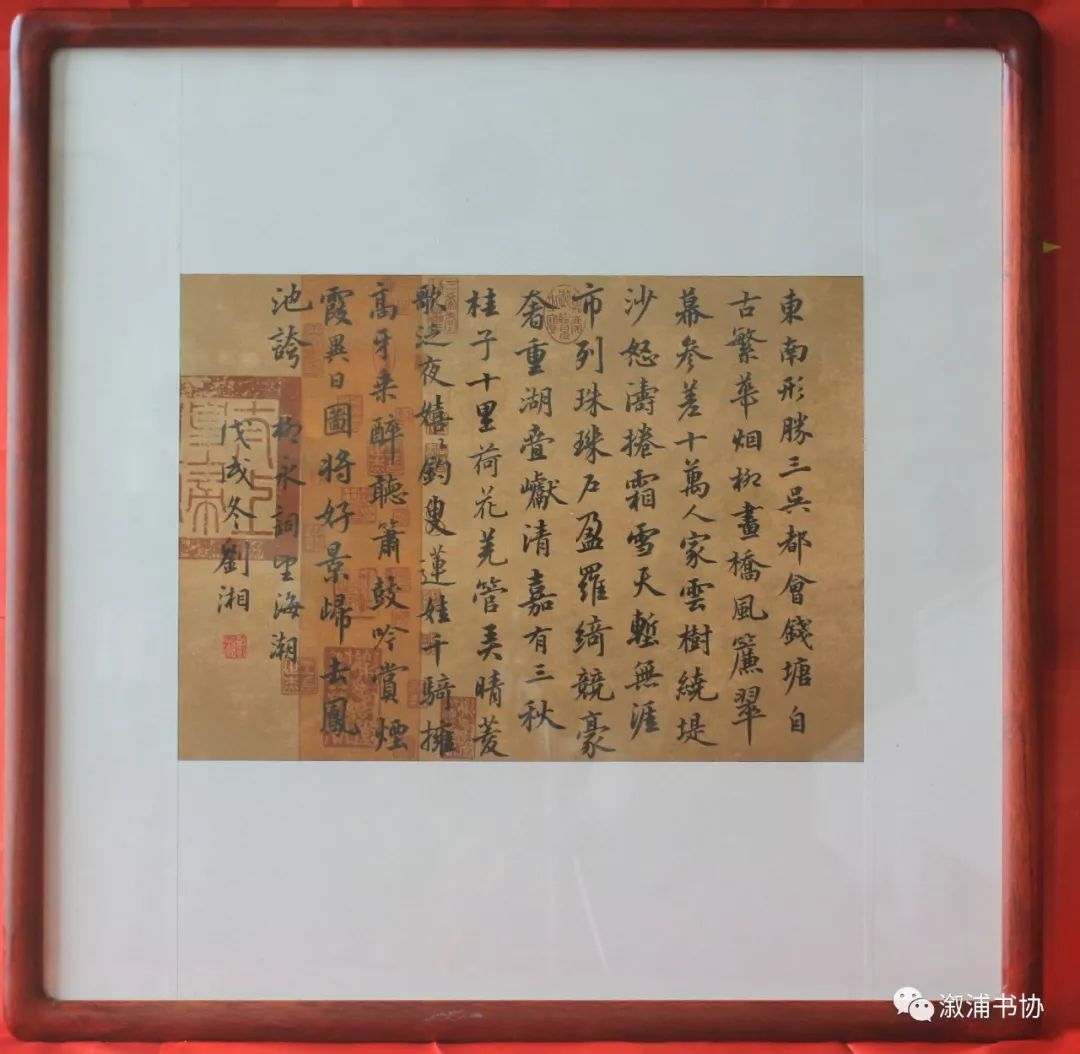 東南形勝三吳都會錢塘自
古繁華烟柳畫橋風簾翠
幕參差十萬人家雲樹繞堤
沙怒濤捲霜雪天塹無涯
市列珠璣戶盈羅綺競豪
奢重湖疊巘清嘉有三秋
桂子十里荷花羌管弄晴菱
歌泛夜嬉〻釣叟蓮娃千騎擁
高牙乘醉聽簫鼓吟賞煙
霞異日圖將好景歸去鳳
池誇
柳永詞望海潮
戊戌冬劉湘
溆浦书协